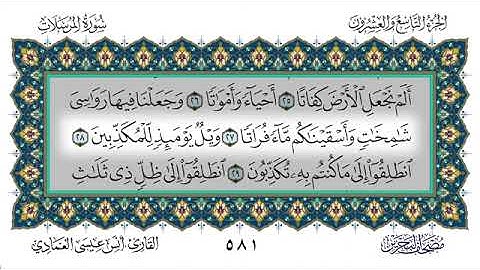 الجزء التاسع والعشرون
سورة المرسلات
أَلَمْ نَجْعَلِ ٱلْأَرْضَ كِفَاتًا ٢٥ أَحْيَآءً وَأَمْوَٰتًا ٢٦ وَجَعَلْنَا فِيهَا رَوَٰسِىَ
شَـٰمِخَـٰتٍ وَأَسْقَيْنَـٰكُم مَّآءً فُرَاتًا ٢٧ وَيْلٌ يَوْمَئِذٍ لِّلْمُكَذِّبِينَ ٢٨
ٱنطَلِقُوٓا۟ إِلَىٰ مَا كُنتُم بِهِۦ تُكَذِّبُونَ ٢٩ ٱنطَلِقُوٓا۟ إِلَىٰ ظِلٍّ ذِى ثَلَـٰثِ
٥٨١
القارئ أنس عيسى العمادي